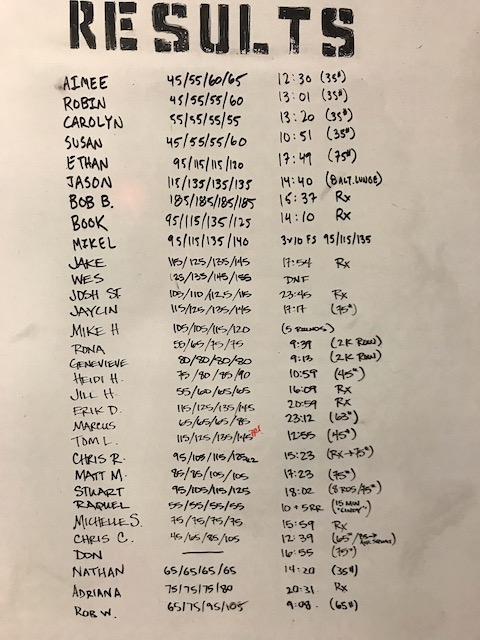 RESULTS
AIMEE 45/55/60/65 12:30 (35#)
ROBIN 45/55/55/60 13:01 (35#)
CAROLYN 55/55/55/55 13:20 (35#)
SUSAN 45/55/55/60 10:51 (35#)
ETHAN 95/115/115/120 17:49 (75#)
JASON 115/135/135/135 14:40 (8 ALT. LUNGE)
BOB B. 185/185/185/185 15:37 Rx
BOOK 95/115/125/125 14:10 Rx
MIKEL 95/115/135/140 3x10 FS 95/115/135
JAKE 115/125/135/145 17:54 Rx
WES 125/135/145/155 DNF
JOSH ST. 105/110/112.5/115 23:45 Rx
JAYCIN 115/125/135/145 17:17 (75#)
MIKE H 105/105/115/120 (5 ROUNDS)
RONA 55/65/75/75 9:39 (2K ROW)
GENEVIEVE 80/80/80/80 9:13 (2K ROW)
HEIDI H. 75/80/85/90 10:59 (45#)
JILL H. 55/60/65/65 16:09 Rx
ERIK D. 115/125/135/145 20:59 Rx
MARCUS 65/65/65/85 23:12 (63#)
TOM L. 115/125/135/145 12:55 (45#)
CHRIS R. 95/105/115/125 15:23 (Rx→75#)
MATT M. 85/85/105/105 17:23 (75#)
STUART 95/105/115/125 18:02 (8 RDS/75#)
RAQUEL 55/55/55/55 10+5RR (15 MIN "CINDY")
MICHELLE S. 75/75/75/75 15:59 Rx
CHRIS C. 45/65/85/105 12:39 (65#/
DON — 16:55 (75#)
NATHAN 65/65/65/65 14:20 (35#)
ADRIANA 75/75/75/80 20:31 Rx
ROB W. 65/75/95/105 9:08. (65#)